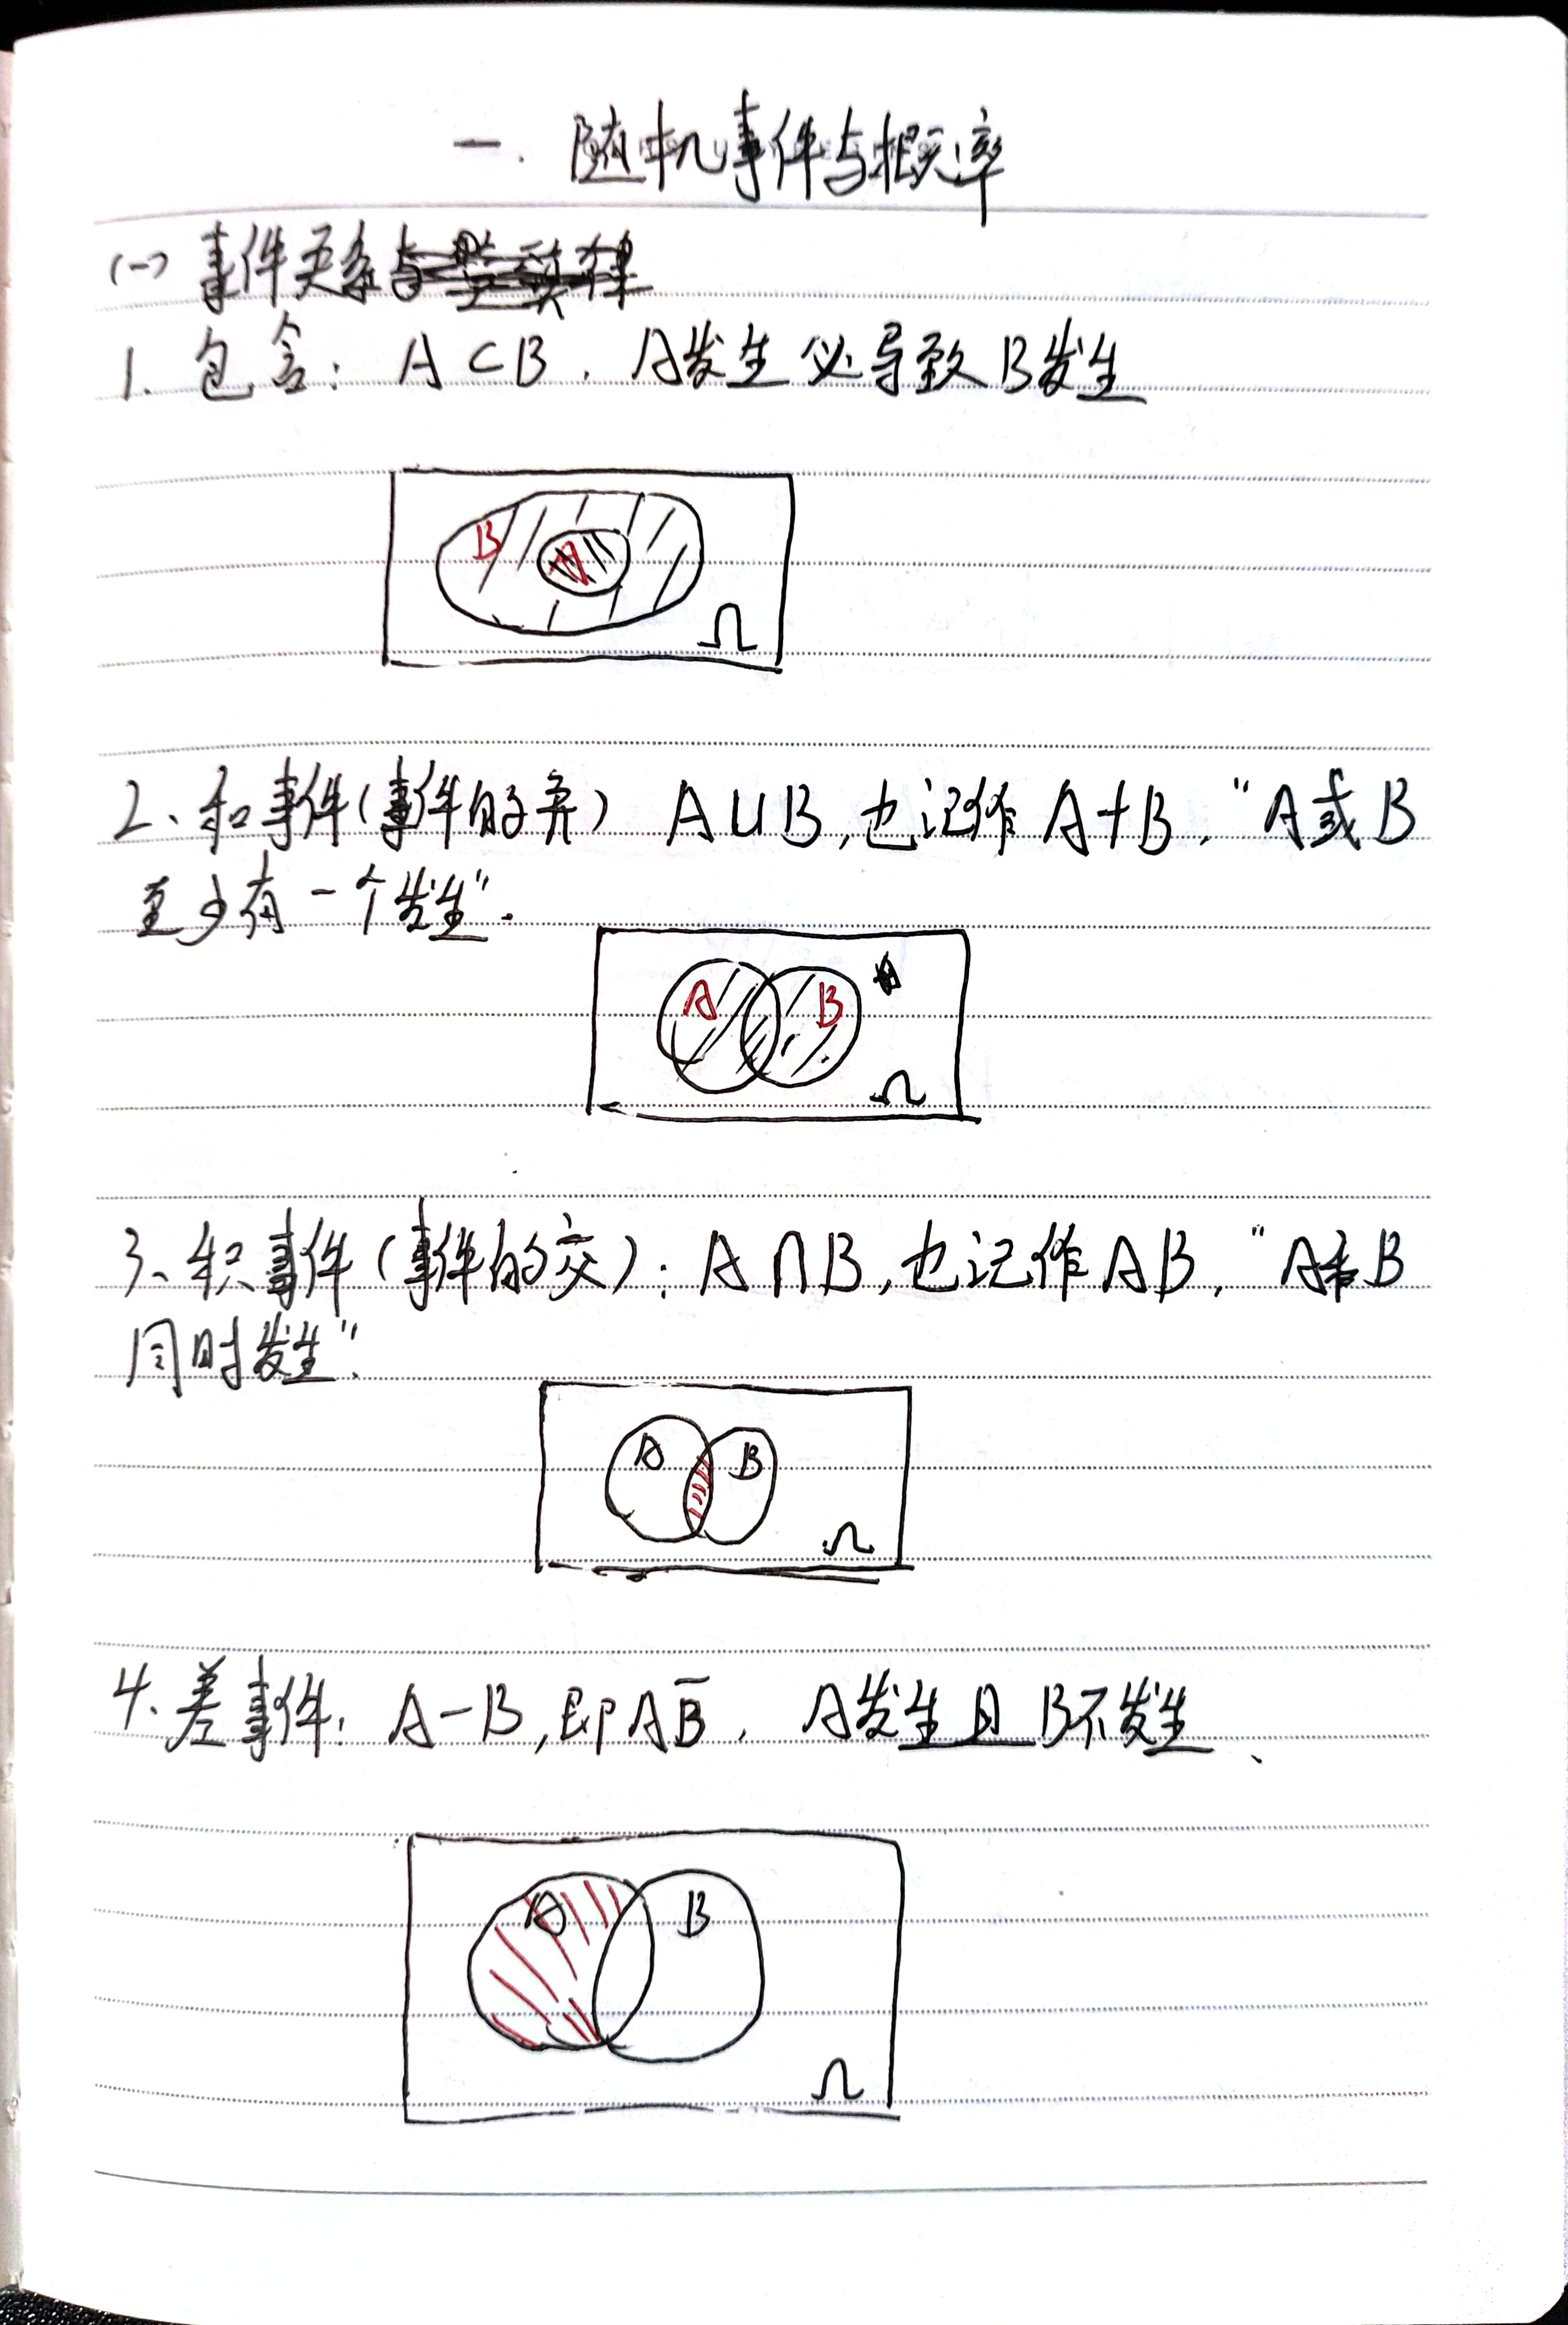 一. 随机事件与概率
(一) 事件关系
1. 包含: A⊂B. A发生必导致B发生
B A
Ω
2、和事件(事件的并) A∪B,也记作A+B. "A或B
至少有一个发生".
A B
Ω
3、积事件(事件的交): A∩B,也记作AB. "A和B
同时发生".
A B
Ω
4、差事件: A-B,即AB̄. A发生且B不发生、
A B
Ω